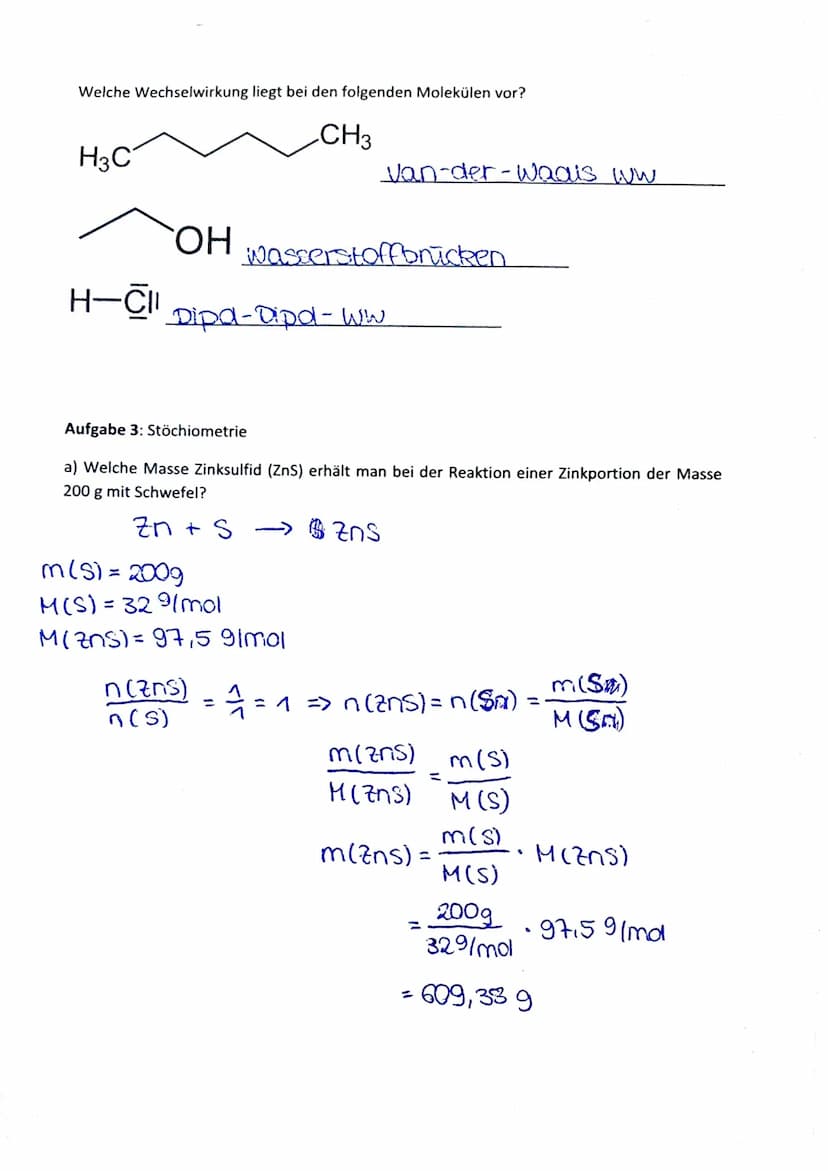 Welche Wechselwirkung liegt bei den folgenden Molekülen vor?
H₃C CH₃ van-der-Waals WW
OH Wasserstoffbrücken
H–Cl Dipol-Dipol-WW
Aufgabe 3: Stöchiometrie
a) Welche Masse Zinksulfid (ZnS) erhält man bei der Reaktion einer Zinkportion der Masse
200 g mit Schwefel?
Zn + S → ZnS
m(S) = 200g
M(S) = 32 g/mol
M(ZnS) = 97,5 g/mol
n(ZnS)/n(S) = 1/1 = 1 => n(ZnS) = n(S) = m(S)/M(S)
m(ZnS)/M(ZnS) = m(S)/M(S)
m(ZnS) = m(S)/M(S) · M(ZnS)
= 200g/32g/mol · 97,5 g/mol
= 609,38 g